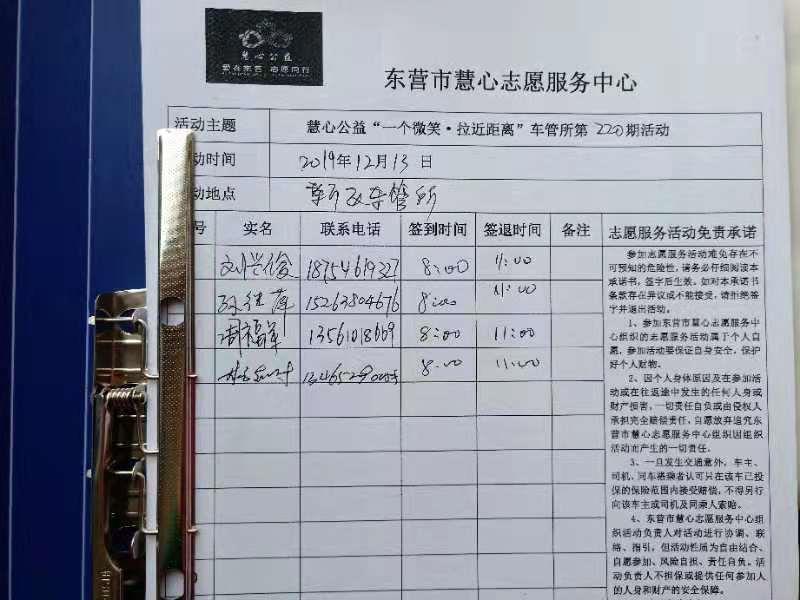 慧心公益
爱在东营 志愿同行
东营市慧心志愿服务中心
活动主题 慧心公益“一个微笑·拉近距离”车管所第220期活动
动时间 2019年12月13日
动地点 车管所
号 实名 联系电话 签到时间 签退时间 备注 志愿服务活动免责承诺
刘兰俊 18754619327 8:00 11:00
15263804676 8:00 11:00
周福军 13561018669 8:00 11:00
8:00 11:00
参加志愿服务活动难免存在不
可预知的危险性,请务必仔细阅读本
承诺书,签字后生效。如对本承诺书
条款存在异议或不能接受,请拒绝签
字并退出活动。
1、参加东营市慧心志愿服务中
心组织的志愿服务活动属于个人自
愿,参加活动要保证自身安全,保护
好个人财物。
2、因个人身体原因及在参加活
动或在往返途中发生的任何人身或
财产损害,一切责任自负或由侵权人
承担完全赔偿责任,自愿放弃追究东
营市慧心志愿服务中心组织因组织
活动而产生的一切责任。
3、一旦发生交通意外,车主、
司机、同车搭乘者认可只在该车已投
保的保险范围内接受赔偿,不得另行
向该车主或司机及同乘人索赔。
4、东营市慧心志愿服务中心组
织活动负责人对活动进行协调、联
络、指引,但活动性质为自由结合、
自愿参加、风险自担、责任自负。活
动负责人不担保或提供任何参加人
的人身和财产的安全保障。